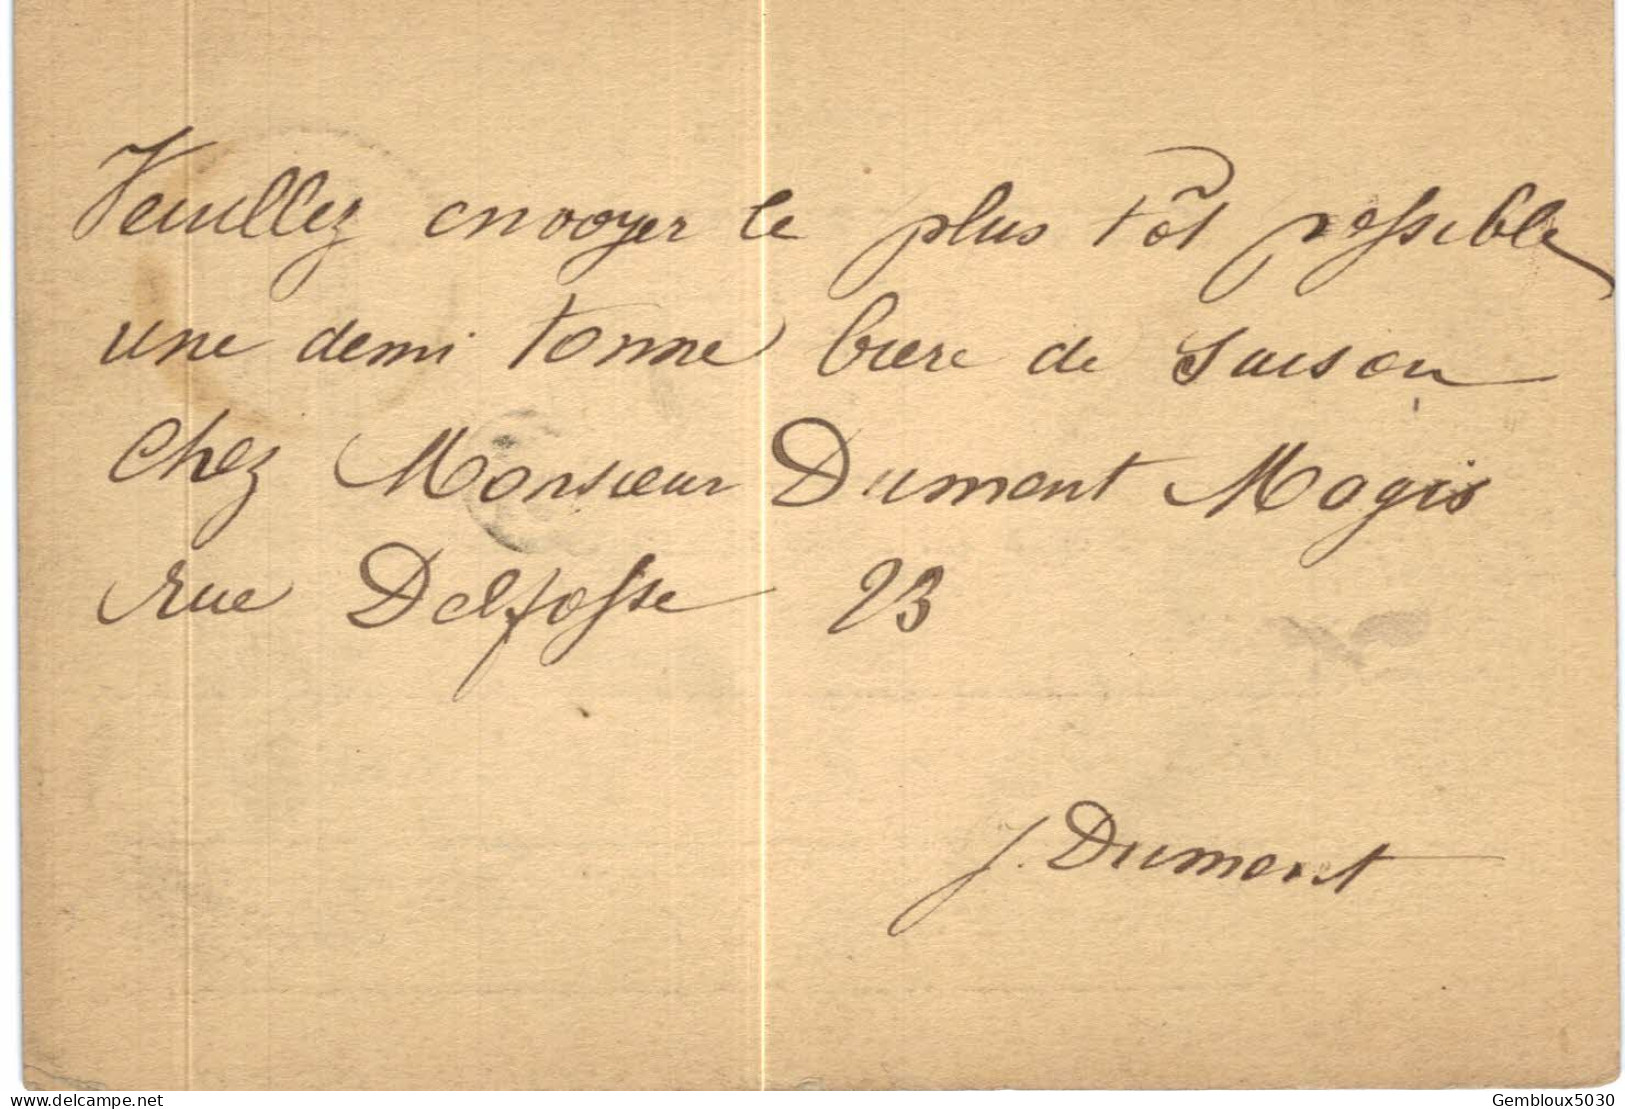 Veuillez envoyer le plus tôt possible
une demi tonne bière de saison
chez Monsieur Dumont Magis
rue Delfosse 23
J. Dumont
delcampe.net
Gembloux5030